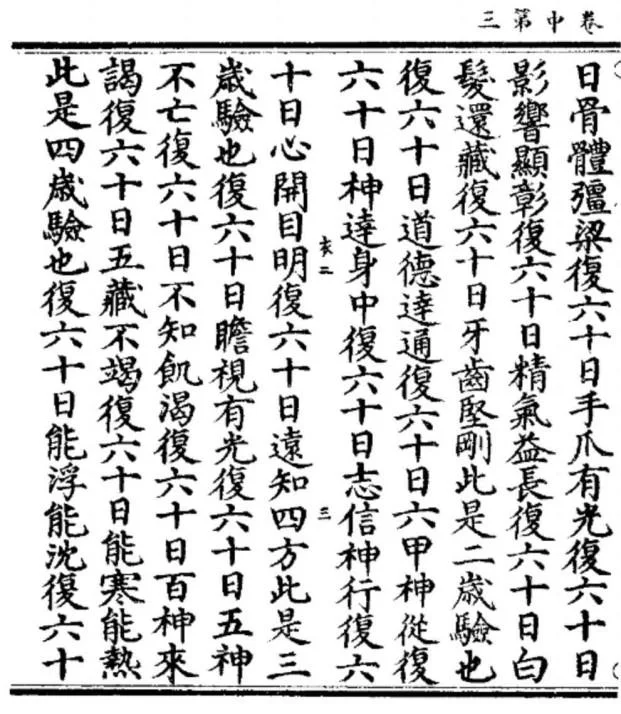 卷中第三
日骨體彊梁復六十日手爪有光復六十日
影響顯彰復六十日精氣益長復六十日白
髮還藏復六十日牙齒堅剛此是二歲驗也
復六十日道德達通復六十日六甲神從復
六十日神達身中復六十日志信神行復六
亥二
三
十日心開目明復六十日遠知四方此是三
歲驗也復六十日瞻視有光復六十日五神
不亡復六十日不知飢渴復六十日百神來
謁復六十日五藏不竭復六十日能寒能熱
此是四歲驗也復六十日能浮能沈復六十